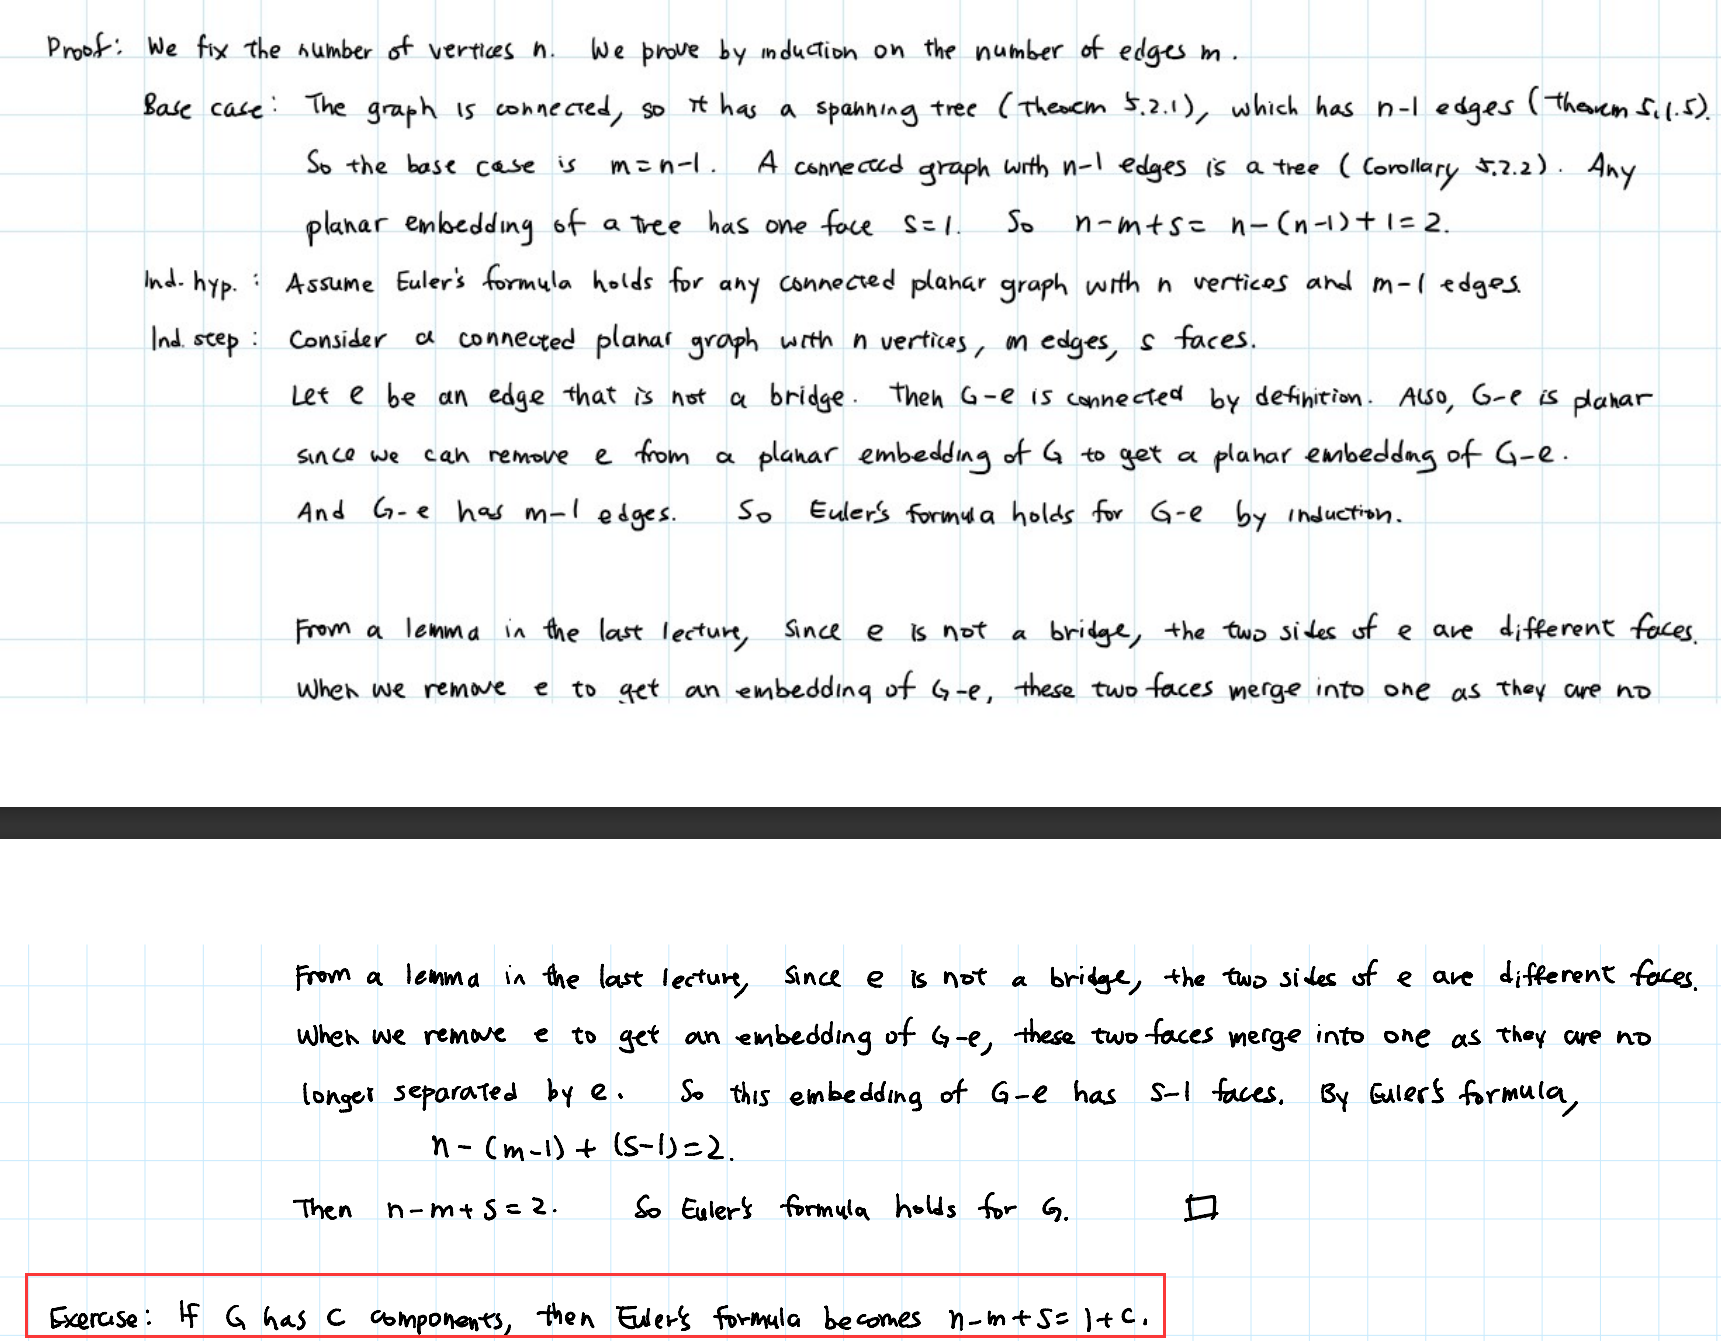 Proof: We fix the number of vertices n. We prove by induction on the number of edges m.
Base case: The graph is connected, so it has a spanning tree (Theorem 5.2.1), which has n-1 edges (Theorem 5.1.5).
So the base case is m=n-1. A connected graph with n-1 edges is a tree (Corollary 5.2.2). Any
planar embedding of a tree has one face s=1. So n-m+s= n-(n-1)+1=2.
Ind. hyp.: Assume Euler's formula holds for any connected planar graph with n vertices and m-1 edges.
Ind. step: Consider a connected planar graph with n vertices, m edges, s faces.
Let e be an edge that is not a bridge. Then G-e is connected by definition. Also, G-e is planar
since we can remove e from a planar embedding of G to get a planar embedding of G-e.
And G-e has m-1 edges. So Euler's formula holds for G-e by induction.
From a lemma in the last lecture, since e is not a bridge, the two sides of e are different faces.
When we remove e to get an embedding of G-e, these two faces merge into one as they are no
From a lemma in the last lecture, since e is not a bridge, the two sides of e are different faces.
When we remove e to get an embedding of G-e, these two faces merge into one as they are no
longer separated by e. So this embedding of G-e has s-1 faces. By Euler's formula,
n-(m-1)+(s-1)=2.
Then n-m+s=2. So Euler's formula holds for G. □
Exercise: If G has C components, then Euler's formula becomes n-m+s=1+C.